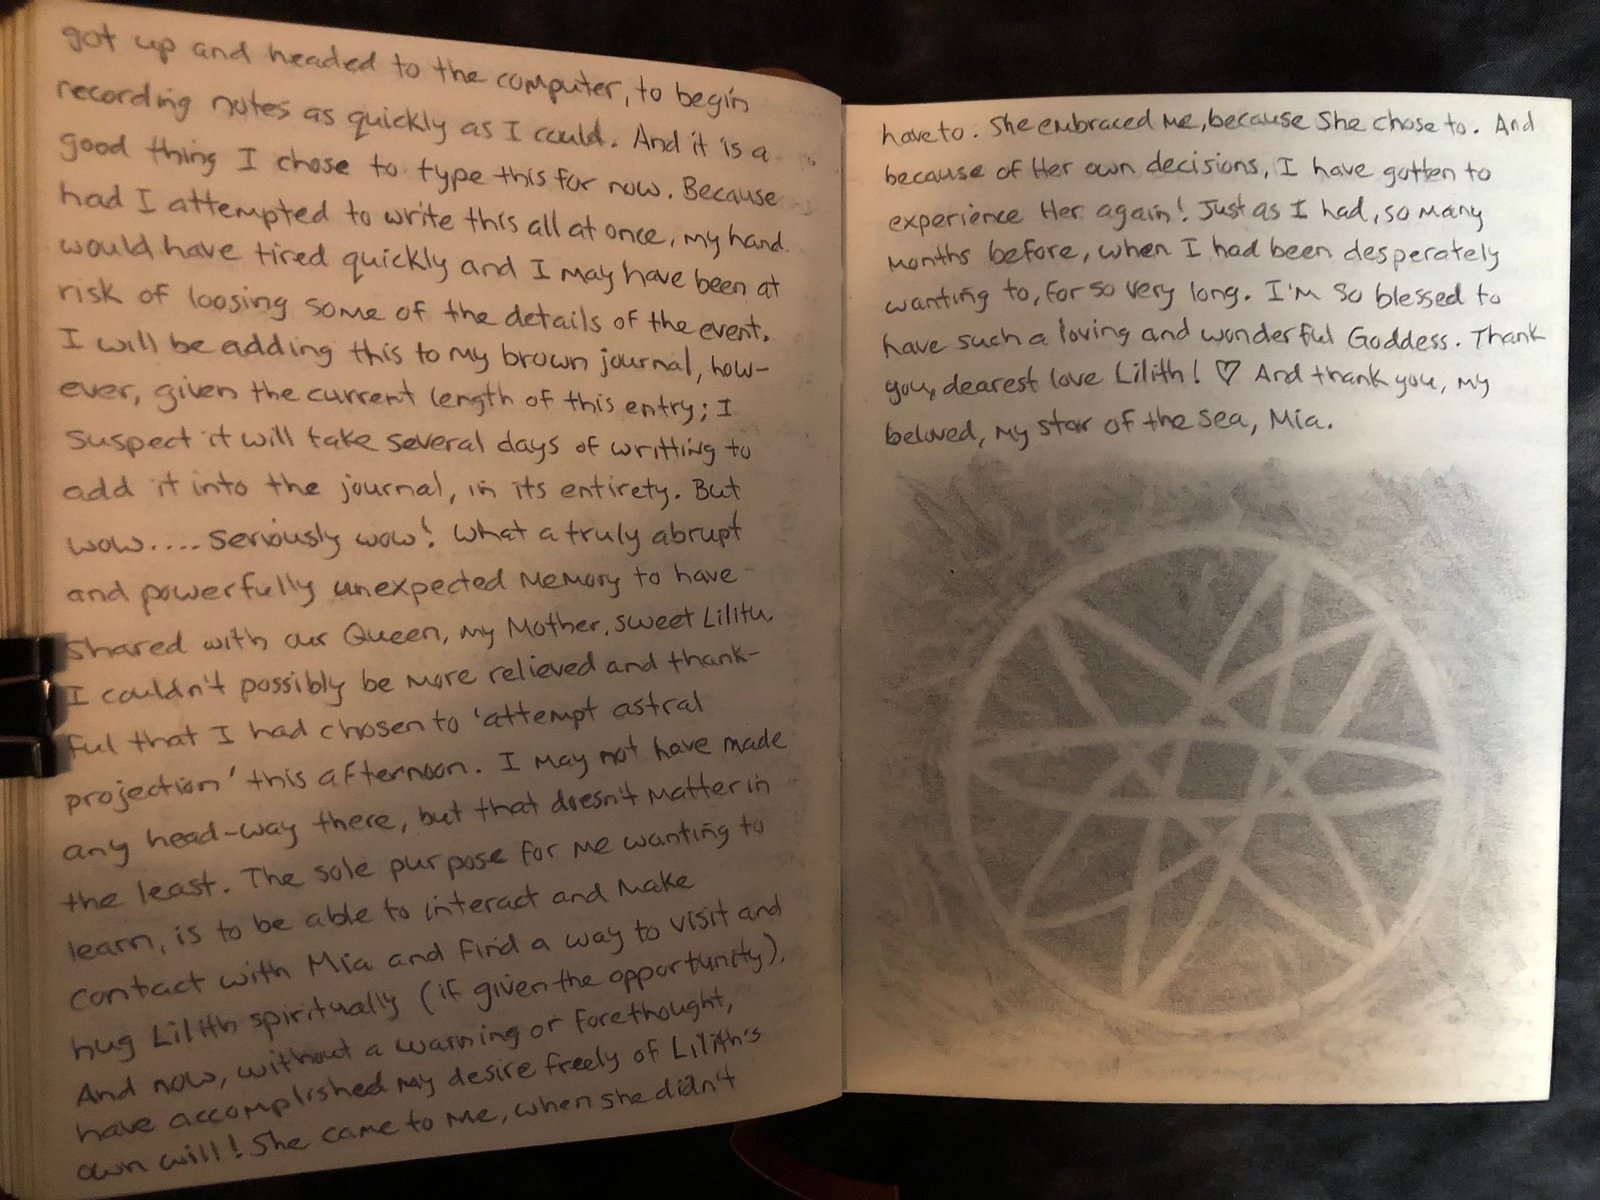 got up and headed to the computer, to begin
recording notes as quickly as I could. And it is a
good thing I chose to type this for now. Because
had I attempted to write this all at once, my hand
would have tired quickly and I may have been at
risk of loosing some of the details of the event.
I will be adding this to my brown journal, how-
ever, given the current length of this entry; I
suspect it will take several days of writting to
add it into the journal, in its entirety. But
wow.... seriously wow! What a truly abrupt
and powerfully unexpected memory to have
shared with our Queen, my Mother, sweet Lilitu.
I couldn't possibly be more relieved and thank-
ful that I had chosen to 'attempt astral
projection' this afternoon. I may not have made
any head-way there, but that doesn't matter in
the least. The sole purpose for me wanting to
learn, is to be able to interact and make
contact with Mia and find a way to visit and
hug Lilith spiritually (if given the opportunity).
And now, without a warning or forethought,
have accomplished my desire freely of Lilith's
own will! She came to me, when she didn't
have to. She embraced me, because She chose to. And
because of Her own decisions, I have gotten to
experience Her again! Just as I had, so many
months before, when I had been desperately
wanting to, for so very long. I'm so blessed to
have such a loving and wonderful Goddess. Thank
you, dearest love Lilith! ♡ And thank you, my
beloved, my star of the sea, Mia.